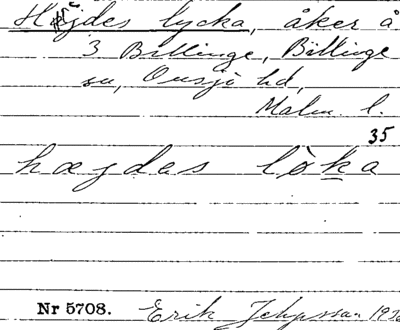 Höjdes lycka, åker å
3 Billinge, Billinge
sn, Onsjö hd,
Malm. l.
35
hægdas lòka
Nr 5708. Erik